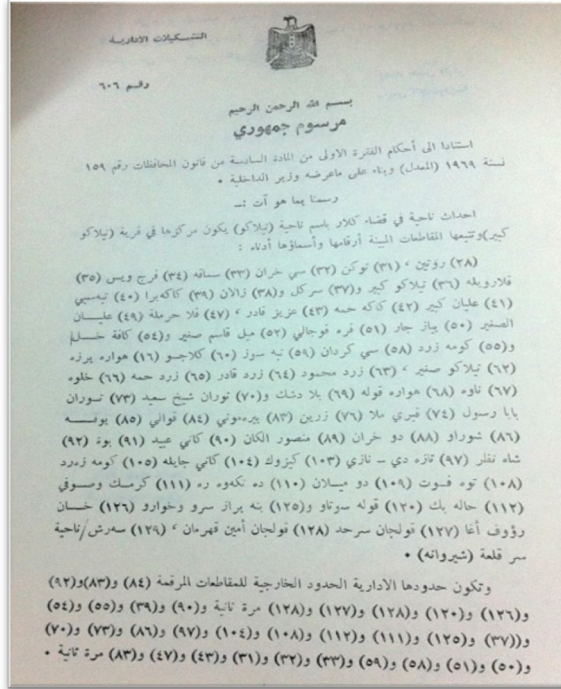 التشكيلات الادارية
رقم ٦٠٦
بسم الله الرحمن الرحيم
مرسوم جمهوري
استنادا الى أحكام الفقرة الاولى من المادة السادسة من قانون المحافظات رقم ١٥٩
لسنة ١٩٦٩ (المعدل) وبناء على ماعرضه وزير الداخلية •
رسمنا بما هو آت :ـ
احداث ناحية في قضاء كلار باسم ناحية (تيلاكو) يكون مركزها في قرية (تيلاكو
كبير) وتتبعها المقاطعات المبينة أرقامها وأسماؤها أدناه :
(٢٨) روتين ، (٣١) توكن (٣٢) سي خران (٣٣) سماقه (٣٤) فرج ويس (٣٥)
قلارويله (٣٦) تيلاكو كبير و(٣٧) سركل و(٣٨) زالان (٣٩) كاكه برا (٤٠) تبه سبي
(٤١) عليان كبير (٤٢) كاكه حمه (٤٣) عزيز قادر ، (٤٧) فلا حرملة (٤٩) عليــان
الصغير (٥٠) بياز جار (٥١) قره فوجالي (٥٢) ميل قاسم صغير و(٥٤) كافة خــل
و(٥٥) كومه زرد (٥٨) سي كردان (٥٩) تبه سوز (٦٠) كلاجــو (١٦) هواره برزه
(٦٢) تيلاكو صغير ، (٦٣) زرد محمود (٦٤) زرد قادر (٦٥) زرد حمه (٦٦) خلوه
(٦٧) تاوه (٦٨) هواره قوله (٦٩) بلا دشك و(٧٠) توران شيخ سعيد (٧٣) تــوران
بابا رسول (٧٤) قبري ملا (٧٦) زرين (٨٣) بيره موني (٨٤) قوالي (٨٥) يوفــه
(٨٦) شوراو (٨٨) دو خران (٨٩) منصور الكان (٩٠) كاني عبيد (٩١) بوة (٩٢)
شاه نظر (٩٧) تازه دي – نازي (١٠٣) كيزوك (١٠٤) كاني جايله (١٠٥) كومه زه رد
(١٠٨) توه قــوت (١٠٩) دو ميــلان (١١٠) ده نكه وه ره (١١١) كرمــك وصــوفي
(١١٢) حاله بك (١٢٠) قوله سوتاو و(١٢٥) بنه براز سرو وخوارو (١٢٦) خــان
رؤوف آغا (١٢٧) قولجان سرحد (١٢٨) قولجان أمين قهرمان ، (١٢٩) سه رش/ناحية
سر قلعة (شيروانه) •
وتكون حدودها الادارية الحدود الخارجية للمقاطعات المرقمة (٨٤) و(٨٣)و(٩٢)
و(١٢٦) و(١٢٠) و(١٢٨) و(١٢٧) و(١٢٨) مرة ثانية و(٩٠) و(٣٩) و(٥٥) و(٥٤)
و((٣٧) و(١٢٥) و(١١١) و(١١٢) و(١٠٨) و(١٠٤) و(٩٧) و(٨٦) و(٧٣) و(٧٠)
و(٥٠) و(٥١) و(٥٨) و(٥٩) و(٣٣) و(٣٢) و(٣١) و(٤٣) و(٤٧) و(٨٣) مرة ثانية •